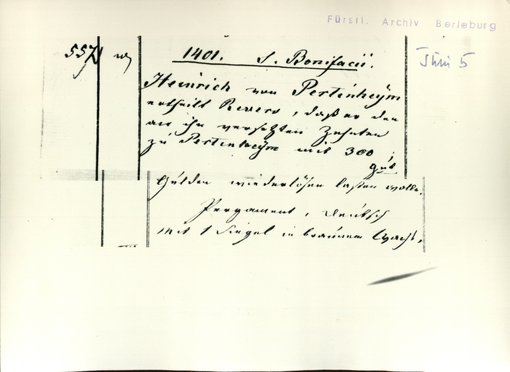 Fürstl. Archiv Berleburg
557
1401. S. Bonifacii.
Juni 5
Heinrich von Pertinheÿm
ertheilt Revers, daß er den
an ihn versetzten Zehnten
zu Pertenheÿm mit 300
gut
Gulden wiederlösen lassen wolle.
Pergament, deutsch
mit 1 Siegel in braunem Wachs.